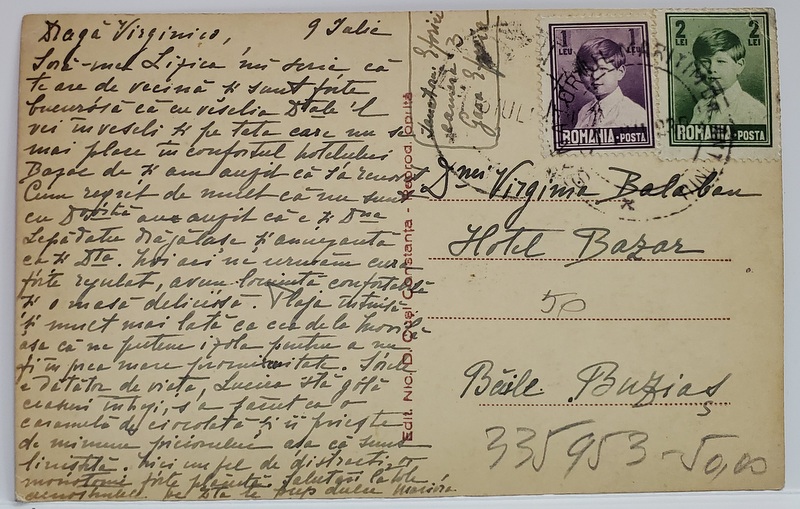 Dragă Virginico, 9 Iulie
Soră-mea Ligica mi scrie că
te are de vecină și sunt forte
bucurósă că cu veselia Dtale 'l
vei înveseli și pe tata care nu se
mai place în confortul hotelului
Bazar de și am auzit că
Cum regret de mult că nu sunt
cu am auzit că e și Dna
Lepădatu drăgălașe și
ca și Dta. Noi aci ne urmăm cura
forte regulat, avem locuință confortabilă
și o masă deliciósă. Plaja întinsă
și mult mai lată ca cea dela
așa că ne putem izola pentru a nu
fi în prea mare promiscuitate. Sórele
e dătător de viață, Lucica stă golă
ceasuri întregi, s'a făcut ca o
caramelă de ciocolată și îi priește
de minune piciorului așa că sunt
liniștită. Nici un fel de distracții, o
monotonie forte plăcută. Salutări
pe Dta te dulce
Edit. Nic. D. Cuai Constanta - Reprod. oprită
Gara Eforie
1 LEU 1 LEU
ROMANIA-POSTA
2 LEI 2 LEI
ROMANIA-POSTA
Dnei Virginia Balaban
Hotel Bazar
50
Băile Buziaș
335953-50,00